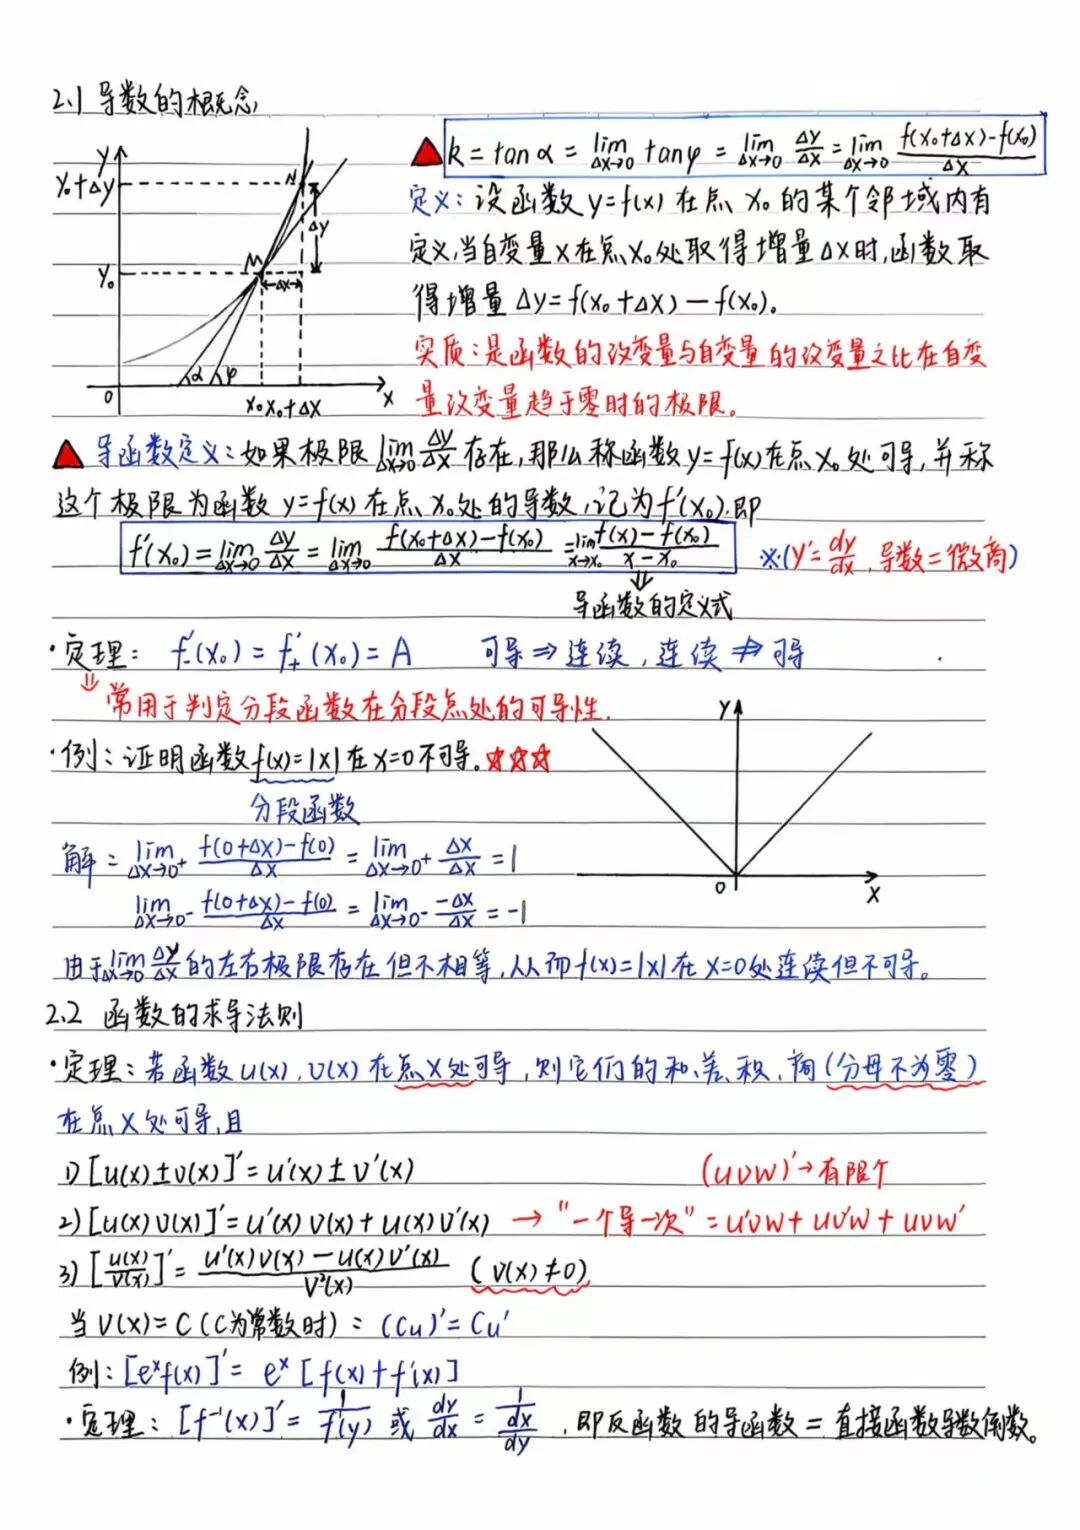 2.1 导数的概念
y
y₀+Δy
N
Δy
y₀
M
Δx
α φ
0
x₀ x₀+Δx
x
k = tanα = lim Δx→0 tanφ = lim Δx→0 Δy/Δx = lim Δx→0 (f(x₀+Δx)-f(x₀))/Δx
定义：设函数 y=f(x) 在点 x₀ 的某个邻域内有
定义,当自变量x在点x₀处取得增量Δx时,函数取
得增量 Δy=f(x₀+Δx)-f(x₀)。
实质：是函数的改变量与自变量的改变量之比在自变
量改变量趋于零时的极限。
导函数定义：如果极限 lim Δx→0 Δy/Δx 存在,那么称函数y=f(x)在点x₀处可导,并称
这个极限为函数 y=f(x) 在点 x₀处的导数,记为f′(x₀).即
f′(x₀)= lim Δx→0 Δy/Δx = lim Δx→0 (f(x₀+Δx)-f(x₀))/Δx = lim x→x₀ (f(x)-f(x₀))/(x-x₀) ※(y′=dy/dx,导数=微商)
⇓
导函数的定义式
·定理：f′₋(x₀) = f′₊(x₀) = A 可导⇒连续,连续⇏可导
⇓ 常用于判定分段函数在分段点处的可导性.
·例：证明函数f(x)=|x|在x=0不可导。☆☆☆
分段函数
y
0
x
解：lim Δx→0⁺ (f(0+Δx)-f(0))/Δx = lim Δx→0⁺ Δx/Δx = 1
lim Δx→0⁻ (f(0+Δx)-f(0))/Δx = lim Δx→0⁻ -Δx/Δx = -1
由于 lim Δx→0 Δy/Δx 的左右极限存在但不相等,从而f(x)=|x|在x=0处连续但不可导。
2.2 函数的求导法则
·定理：若函数u(x),v(x)在点x处可导,则它们的和、差、积、商(分母不为零)
在点x处可导,且
1) [u(x)±v(x)]′=u′(x)±v′(x) (uvw)′→有限个
2) [u(x)v(x)]′=u′(x)v(x)+u(x)v′(x) → "一个导一次" = u′vw+uv′w+uvw′
3) [u(x)/v(x)]′ = (u′(x)v(x)-u(x)v′(x))/v²(x) (v(x)≠0)
当v(x)=C(C为常数时)：(Cu)′=Cu′
例：[eˣf(x)]′= eˣ[f(x)+f′(x)]
·定理：[f⁻¹(x)]′= 1/f′(y) 或 dy/dx = 1/(dx/dy) ,即反函数的导函数=直接函数导数倒数。